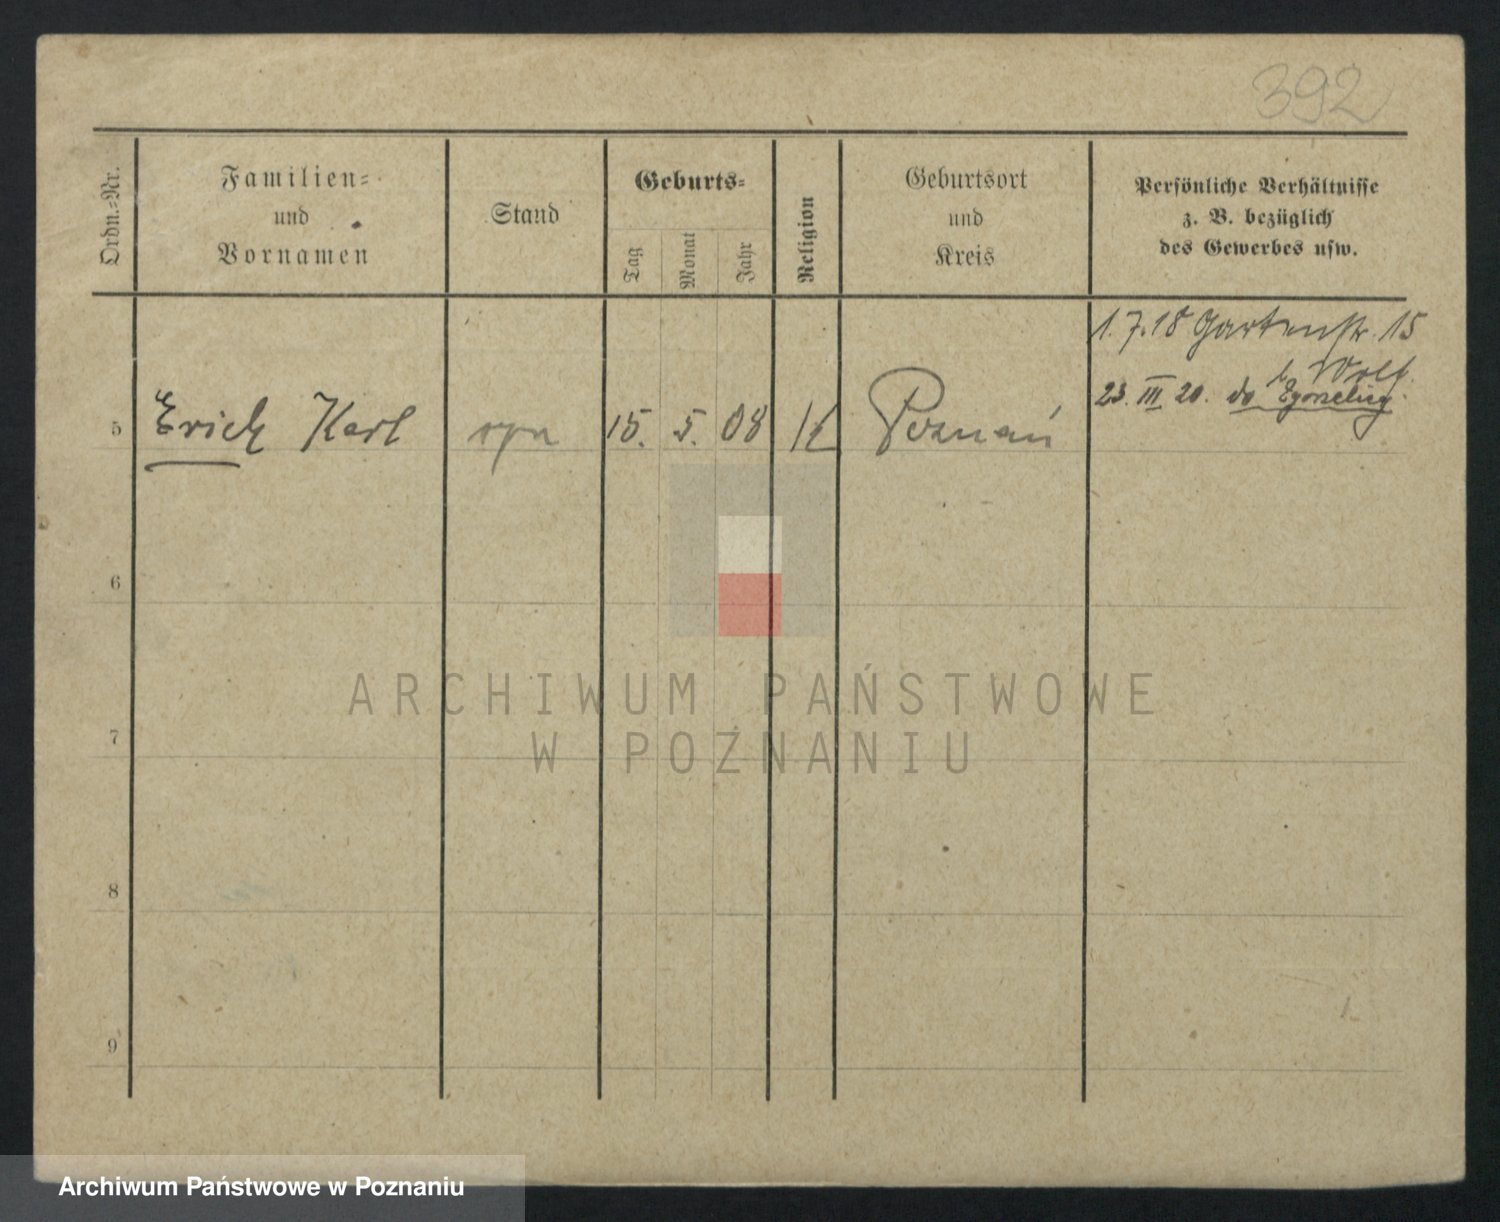 392
Ordn.-Nr.
Familien-
und
Vornamen
Stand
Geburts-
Tag
Monat
Jahr
Religion
Geburtsort
und
Kreis
Persönliche Verhältnisse
z. B. bezüglich
des Gewerbes usw.
1.7.18 Gartenstr. 15
b. Wolf.
23. III 20. do
5 Erich Karl syn 15. 5. 08 K Poznań
6
7
8
9
ARCHIWUM PAŃSTWOWE
W POZNANIU
Archiwum Państwowe w Poznaniu